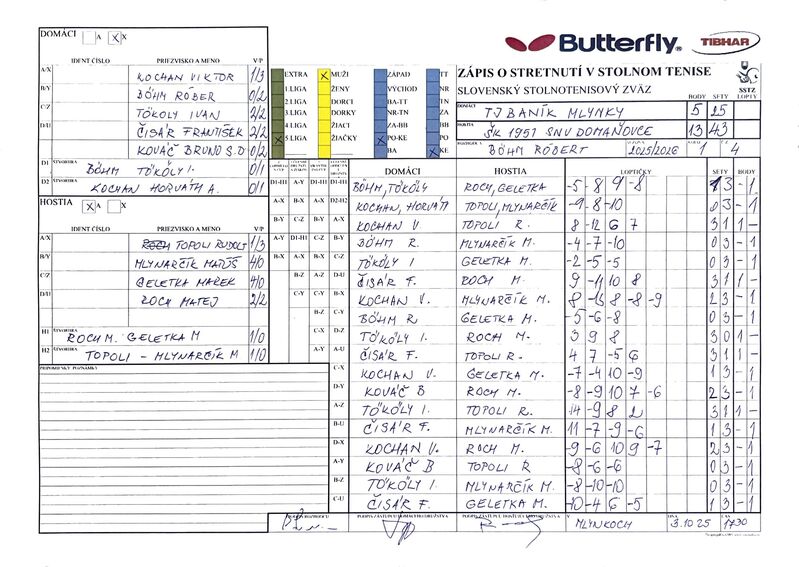 DOMÁCI A X X
Butterfly TIBHAR
IDENT ČÍSLO PRIEZVISKO A MENO V/P
A/X KOCHAN VIKTOR 1/3
B/Y BÖHM RÓBER 0/2
C/Z TÖKÖLY IVAN 2/2
D/U ČISÁR FRANTIŠEK 2/2
KOVÁČ BRUNO S.D 0/2
D1 ŠTVORHRA BÖHM TÖKÖLY I. 0/1
D2 ŠTVORHRA KOCHAN HORVÁTH A. 0/1
EXTRA X MUŽI ZÁPAD TT
1 LIGA ŽENY VÝCHOD NR
2 LIGA DORCI BA-TT TN
3 LIGA DORKY NR-TN ZA
4 LIGA ŽIACI ZA-BB BB
X 5 LIGA ŽIAČKY X PO-KE PO
BA X KE
ZÁPIS O STRETNUTÍ V STOLNOM TENISE
SLOVENSKÝ STOLNOTENISOVÝ ZVÄZ
SSTZ
BODY SETY LOPTY
DOMÁCI TJ BANÍK MLYNKY 5 25
HOSTIA ŠK 1951 SNV DOMAŇOVCE 13 43
BÖHM RÓBERT 2025/2026 1 4
HOSTIA X A X
IDENT ČÍSLO PRIEZVISKO A MENO V/P
A/X TOPOLI RUDOLF 1/3
B/Y MLYNARČÍK MATÚŠ 4/0
C/Z GELETKA MAREK 4/0
D/U ROCH MATEJ 2/2
H1 ŠTVORHRA ROCH M. GELETKA M 1/0
H2 ŠTVORHRA TOPOLI - MLYNARČÍK M 1/0
PRIPOMIENKY POZNÁMKY
DOMÁCI HOSTIA LOPTIČKY SETY BODY
D1-H1 A-Y D1-H1 D1-H1 BÖHM, TÖKÖLY ROCH, GELETKA -5 8 9 -8 1 3 - 1
A-X B-X A-X D2-H2 KOCHAN, HORVÁTH TOPOLI, MLYNARČÍK -9 -8 -10 0 3 - 1
B-Y C-Z B-Y A-X KOCHAN V TOPOLI R. 8 -12 6 7 3 1 1 -
A-Y D1-H1 C-Z B-Y BÖHM R. MLYNARČIK M. -4 -7 -10 0 3 - 1
B-X A-X B-X C-Z TÖKÖLY I GELETKA M. -2 -5 -5 0 3 - 1
B-Z A-Z D-U ČISÁR F. ROCH M. 9 -11 10 8 3 1 1 -
C-Y C-Y B-X KOCHAN V. MLYNARČÍK M. 8 -8 -9 2 3 - 1
B-Z C-Y BÖHM R GELETKA M. -5 -6 -8 0 3 - 1
C-X D-Z TÖKÖLY I. ROCH M. 3 9 8 3 0 1 -
A-Y A-U ČISÁR F. TOPOLI R. 4 7 -5 6 3 1 1 -
C-X KOCHAN V GELETKA M. -7 -4 10 -9 1 3 - 1
D-Y KOVÁČ B ROCH M. -8 -9 10 7 -6 2 3 - 1
A-Z TÖKÖLY I. TOPOLI R. 14 -9 8 2 3 1 1 -
B-U ČISÁR F. MLYNARČÍK M. 11 -7 -9 -6 1 3 - 1
D-X KOCHAN V. ROCH M. -9 -6 10 9 -7 2 3 - 1
A-Y KOVÁČ B TOPOLI R -8 -6 -6 0 3 - 1
B-Z TÖKÖLY I. MLYNARČÍK M. -8 -10 -10 0 3 - 1
C-U ČISÁR F. GELETKA M. -10 -4 6 -5 1 3 - 1
PODPIS ZÁSTUPCU DOMÁCEHO DRUŽSTVA
V MLYNKOCH DŇA 3.10.25 ČAS 1730